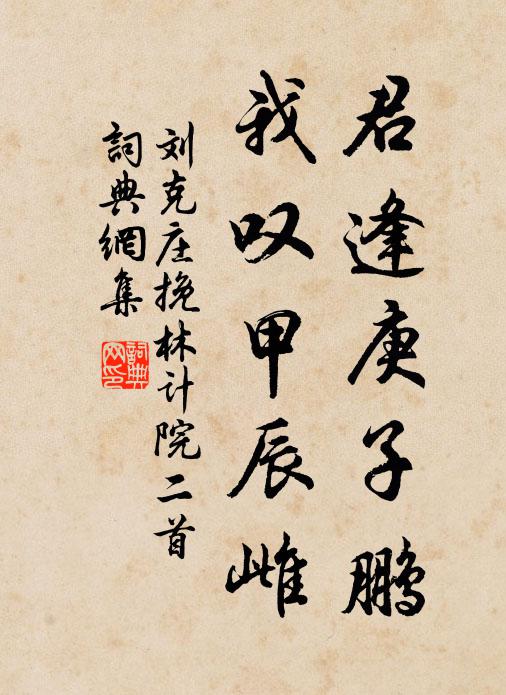 君逢庚子鹏
我叹甲辰雌
刘克庄挽林计院二首
詞典網集
詞典网印